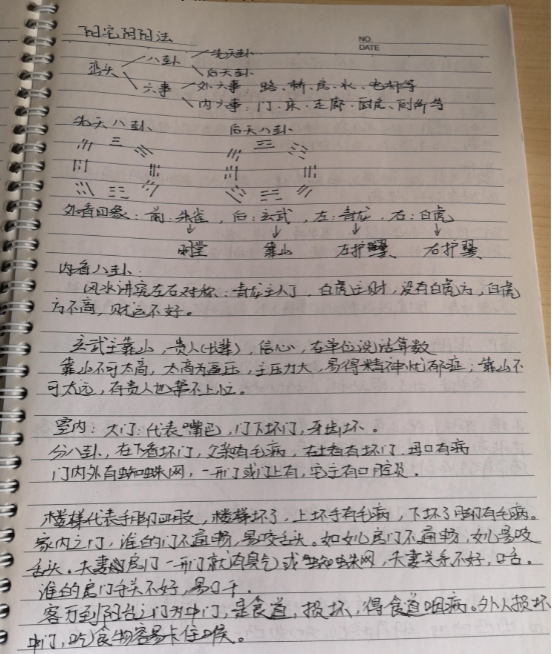 阳宅阴阳法
NO.
DATE
峦头 八卦 先天卦
后天卦
六事 外六事：路、桥、房、水、电杆等
内六事：门、床、走廊、厨房、厕所等
先天八卦 后天八卦
外看四象：前：朱雀，后：玄武，左：青龙，右：白虎
明堂 靠山 左护翼 右护翼
内看八卦：
风水讲究左右对称：青龙主人丁，白虎主财，没有白虎方，白虎
方不高，财运不好。
玄武主靠山，贵人(长辈)，信心，在单位说话算数
靠山不可太高，太高为压，主压力大，易得精神忧郁症；靠山不
可太远，有贵人也帮不上忙。
室内：大门：代表嘴巴，门下坏门，牙齿坏。
分八卦，在下看坏门，父亲有毛病，在右有坏门，母口有病
门内外有蜘蛛网，一开门或门上有，宅主有口腔炎。
楼梯代表手脚四肢，楼梯坏了，上坏手有毛病，下坏了脚有毛病。
家内之门，谁的门不通畅，易咬舌头。如女儿房门不通畅，女儿易咬
舌头。夫妻房门一开门就有臭气或蜘蛛网，夫妻关系不好，口舌。
谁的房门开关不好，易口干。
客厅到阳台之门为中门，是食道，损坏，得食道咽病。外人损坏
中门，吃食物容易卡住喉。